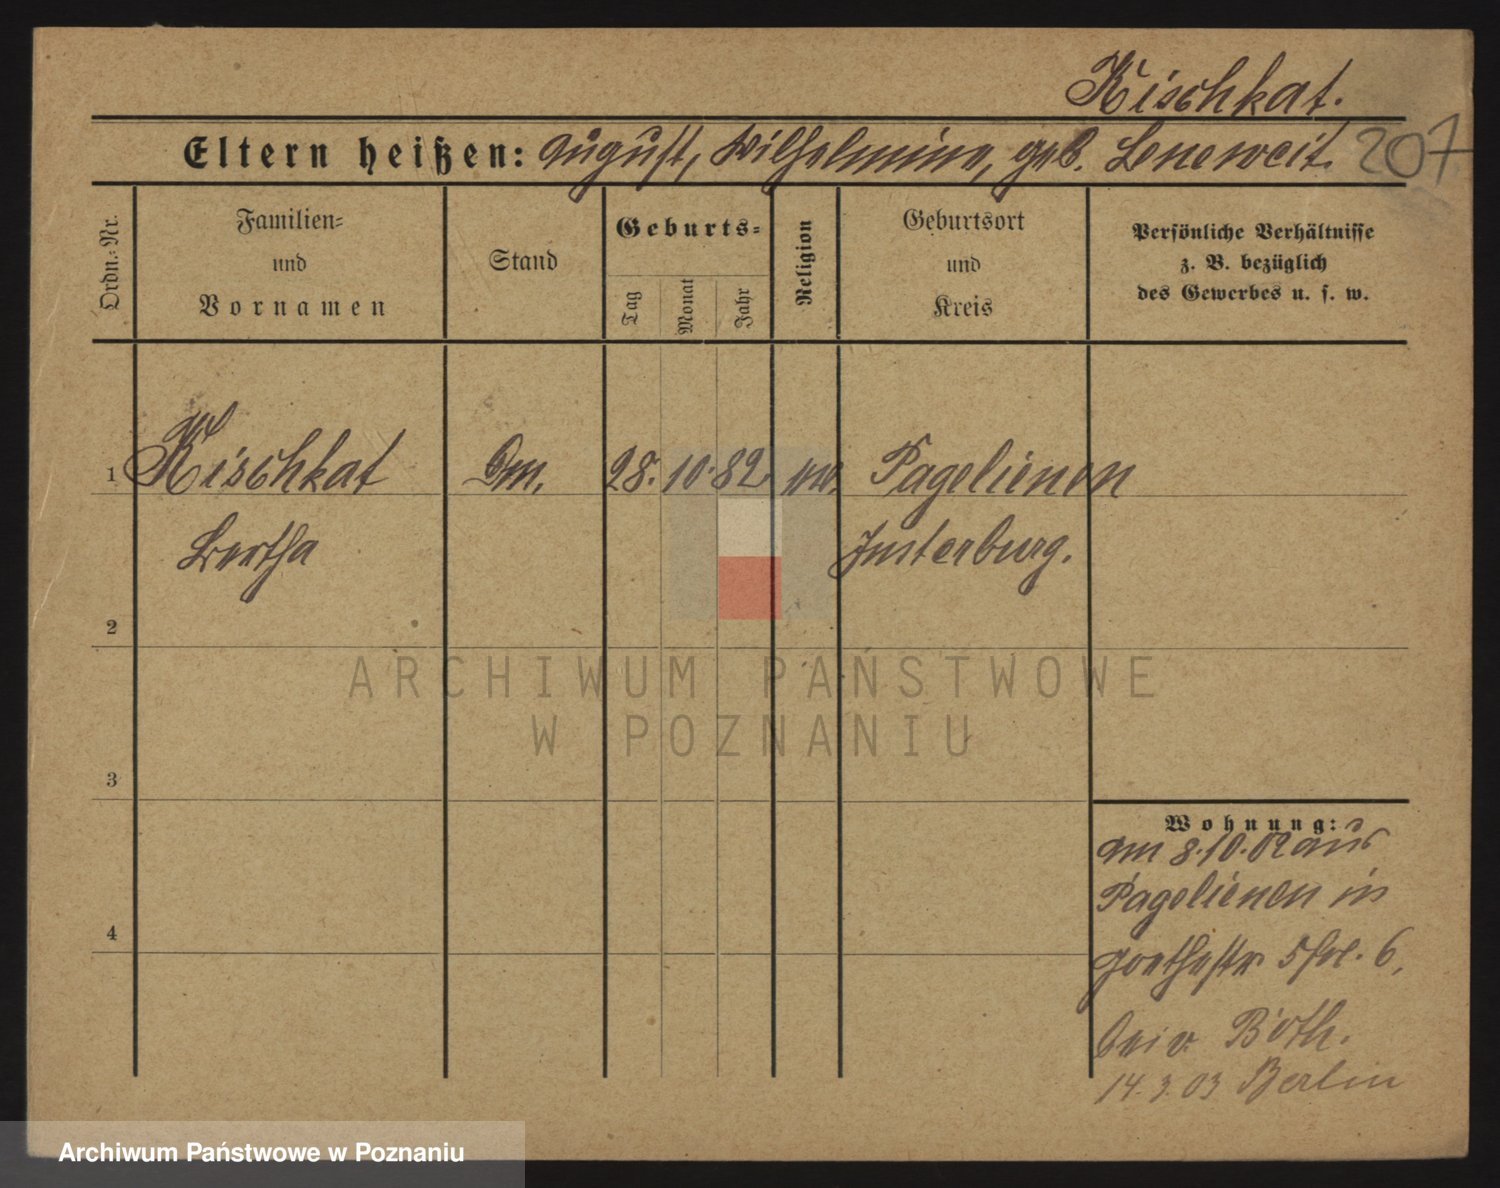 Kischkat.
Eltern heißen: August, Wilhelmine, geb. Leneweit. 207
Ordn.-Nr.
Familien-
und
Vornamen
Stand
Geburts-
Tag
Monat
Jahr
Religion
Geburtsort
und
Kreis
Persönliche Verhältnisse
z. B. bezüglich
des Gewerbes u. s. w.
1 Kischkat 28. 10. 82. Pagelienen
Bertha Insterburg.
2
3
4
Wohnung:
am 8.10.02 aus
Pagelienen in
Goethestr 5 6,
bei v. Both.
14.3.03 Berlin
ARCHIWUM PAŃSTWOWE
W POZNANIU
Archiwum Państwowe w Poznaniu